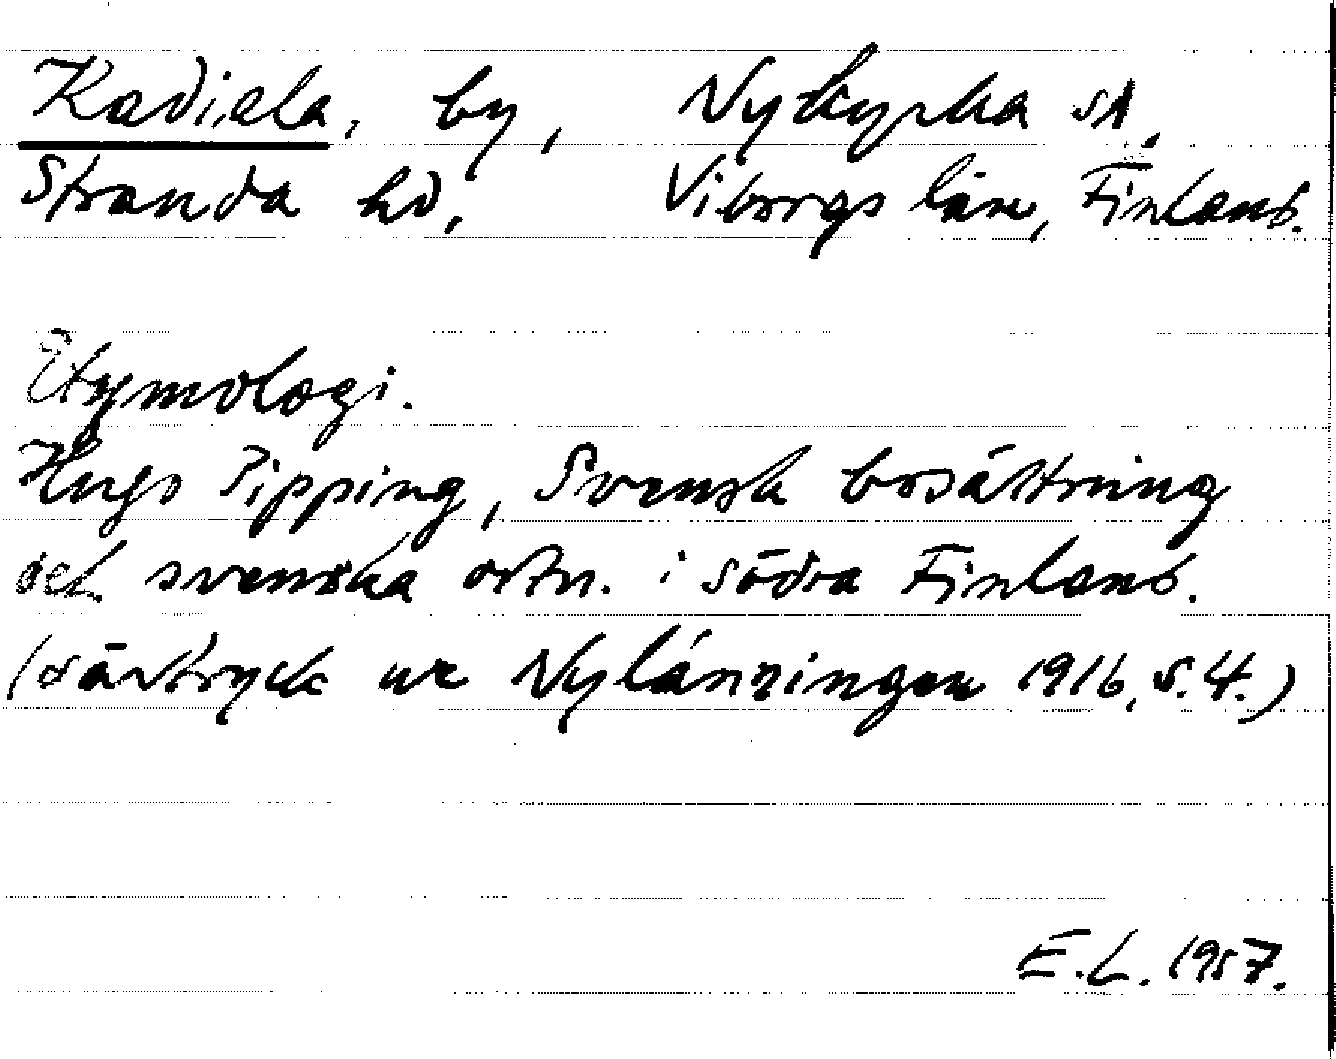 Kadiela, by, Nykyrka sn.
Stranda hd, Viborgs län, Finland.
Etymologi.
Hugo Pipping, Svensk bosättning
och svenska ortn. i södra Finland.
(särtryck ur Nylänningen 1916, s. 4.)
E.L. 1957.